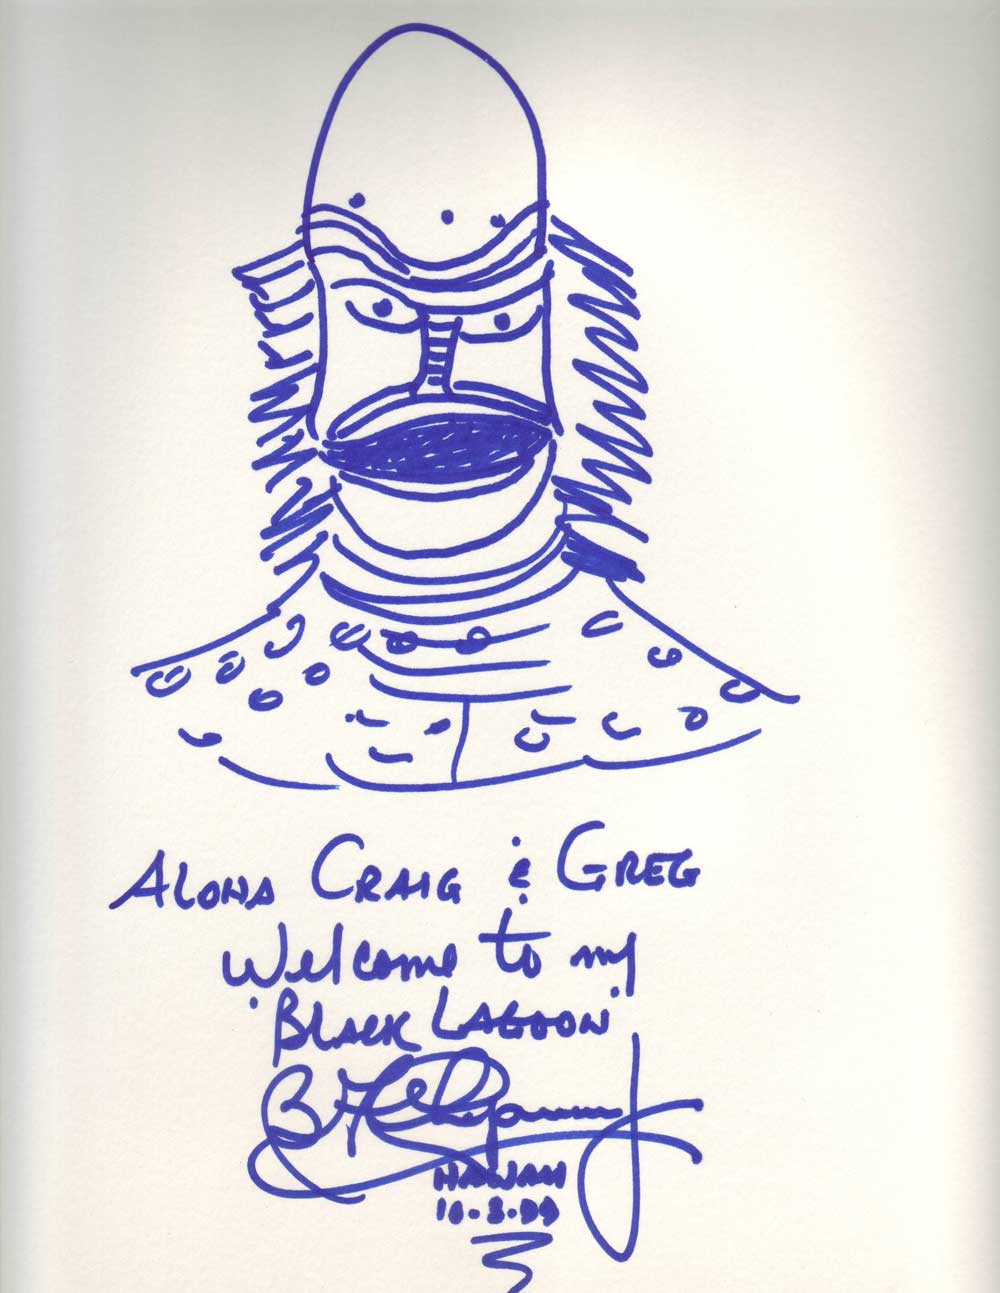 Aloha Craig & Greg
Welcome to my
"Black Lagoon"
B F Chapman
Hawaii
10.3.99